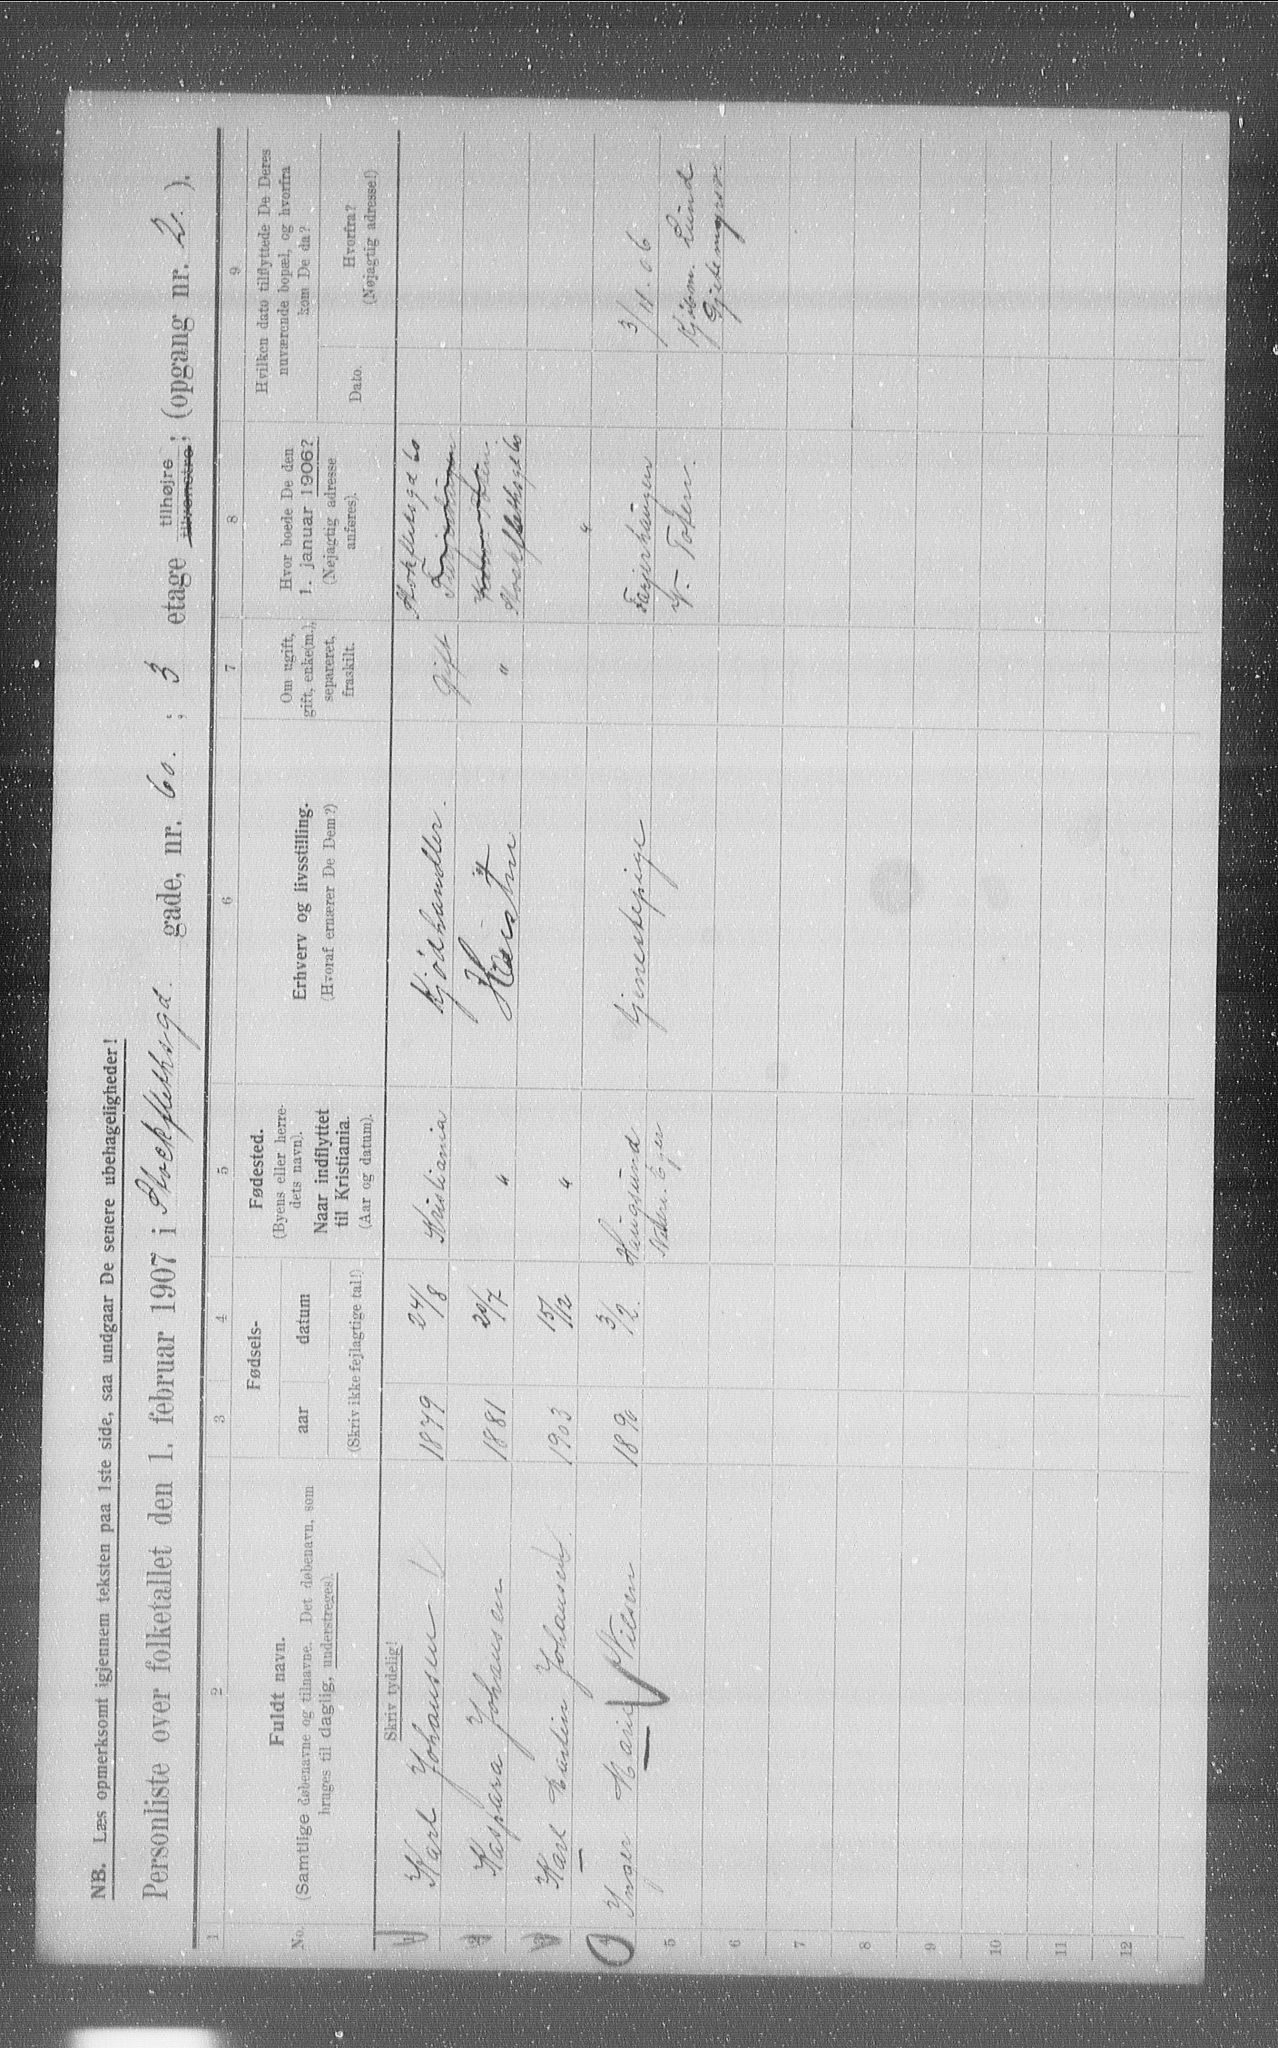 NB. Læs opmerksomt igjennem teksten paa 1ste side, saa undgaar De senere ubehageligheder!
Personliste over folketallet den 1. februar 1907 i Stockflethsgd. gade, nr. 60. ; 3 etage tilhøjre tilvenstre; (opgang nr. 2. ).
1 2 3 4 5 6 7 8 9
No.
Fuldt navn.
(Samtlige døbenavne og tilnavne. Det døbenavn, som
bruges til daglig, understreges).
Fødsels-
aar datum
(Skriv ikke fejlagtige tal!)
Fødested.
(Byens eller herre-
dets navn).
Naar indflyttet
til Kristiania.
(Aar og datum).
Erhverv og livsstilling.
(Hvoraf ernærer De Dem?)
Om ugift,
gift, enke(m.),
separeret,
fraskilt.
Hvor boede De den
1. januar 1906?
(Nøjagtig adresse
anføres).
Hvilken dato tilflyttede De Deres
nuværende bopæl, og hvorfra
kom De da?
Dato.
Hvorfra?
(Nøjagtig adresse!)
Skriv tydelig!
1 Karl Johansen 1879 24/8 Kristiania Kjødhandler. gift Stokflethsgd 60
2 Kaspara Johansen 1881 20/7 " Hustru " Stockflethsgd 60
3 Karl Martin Johansen 1903 15/12 " "
4 Inger Marie Nilsen 1890 3/2. Haugsund Neder. Eger tjenestepige Fayerhaugen V. Toten. 3/11.06
Kjøbm. Lund
Gjetemyrsv.
5
6
7
8
9
10
11
12